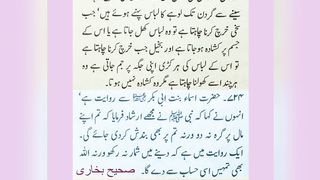 سینے سے گردن تک لوہے کا لباس پہنے ہوئے ہیں' جب
سخی خرچ کرنا چاہتا ہے تو وہ لباس کھل جاتا ہے یا اس کے
جسم پر کشادہ ہو جاتا ہے اور بخیل جب خرچ کرنا چاہتا ہے تو
اس کے لباس کی ہر کڑی اپنی جگہ پر جم جاتی ہے وہ
ہر چند اسے کھولنا چاہتا ہے مگر وہ کشادہ نہیں ہوتا.
۷۲۴. حضرت اسماء بنت ابی بکر ؓ سے روایت ہے'
انہوں نے کہا کہ نبی ﷺ نے مجھے ارشاد فرمایا کہ تم اپنے
مال پر گرہ نہ دو ورنہ تم پر بھی بندش کر دی جائے گی.
ایک روایت میں ہے کہ دینے میں شمار نہ رکھو ورنہ اللہ
بھی تمہیں اسی حساب سے دے گا. صحیح بخاری